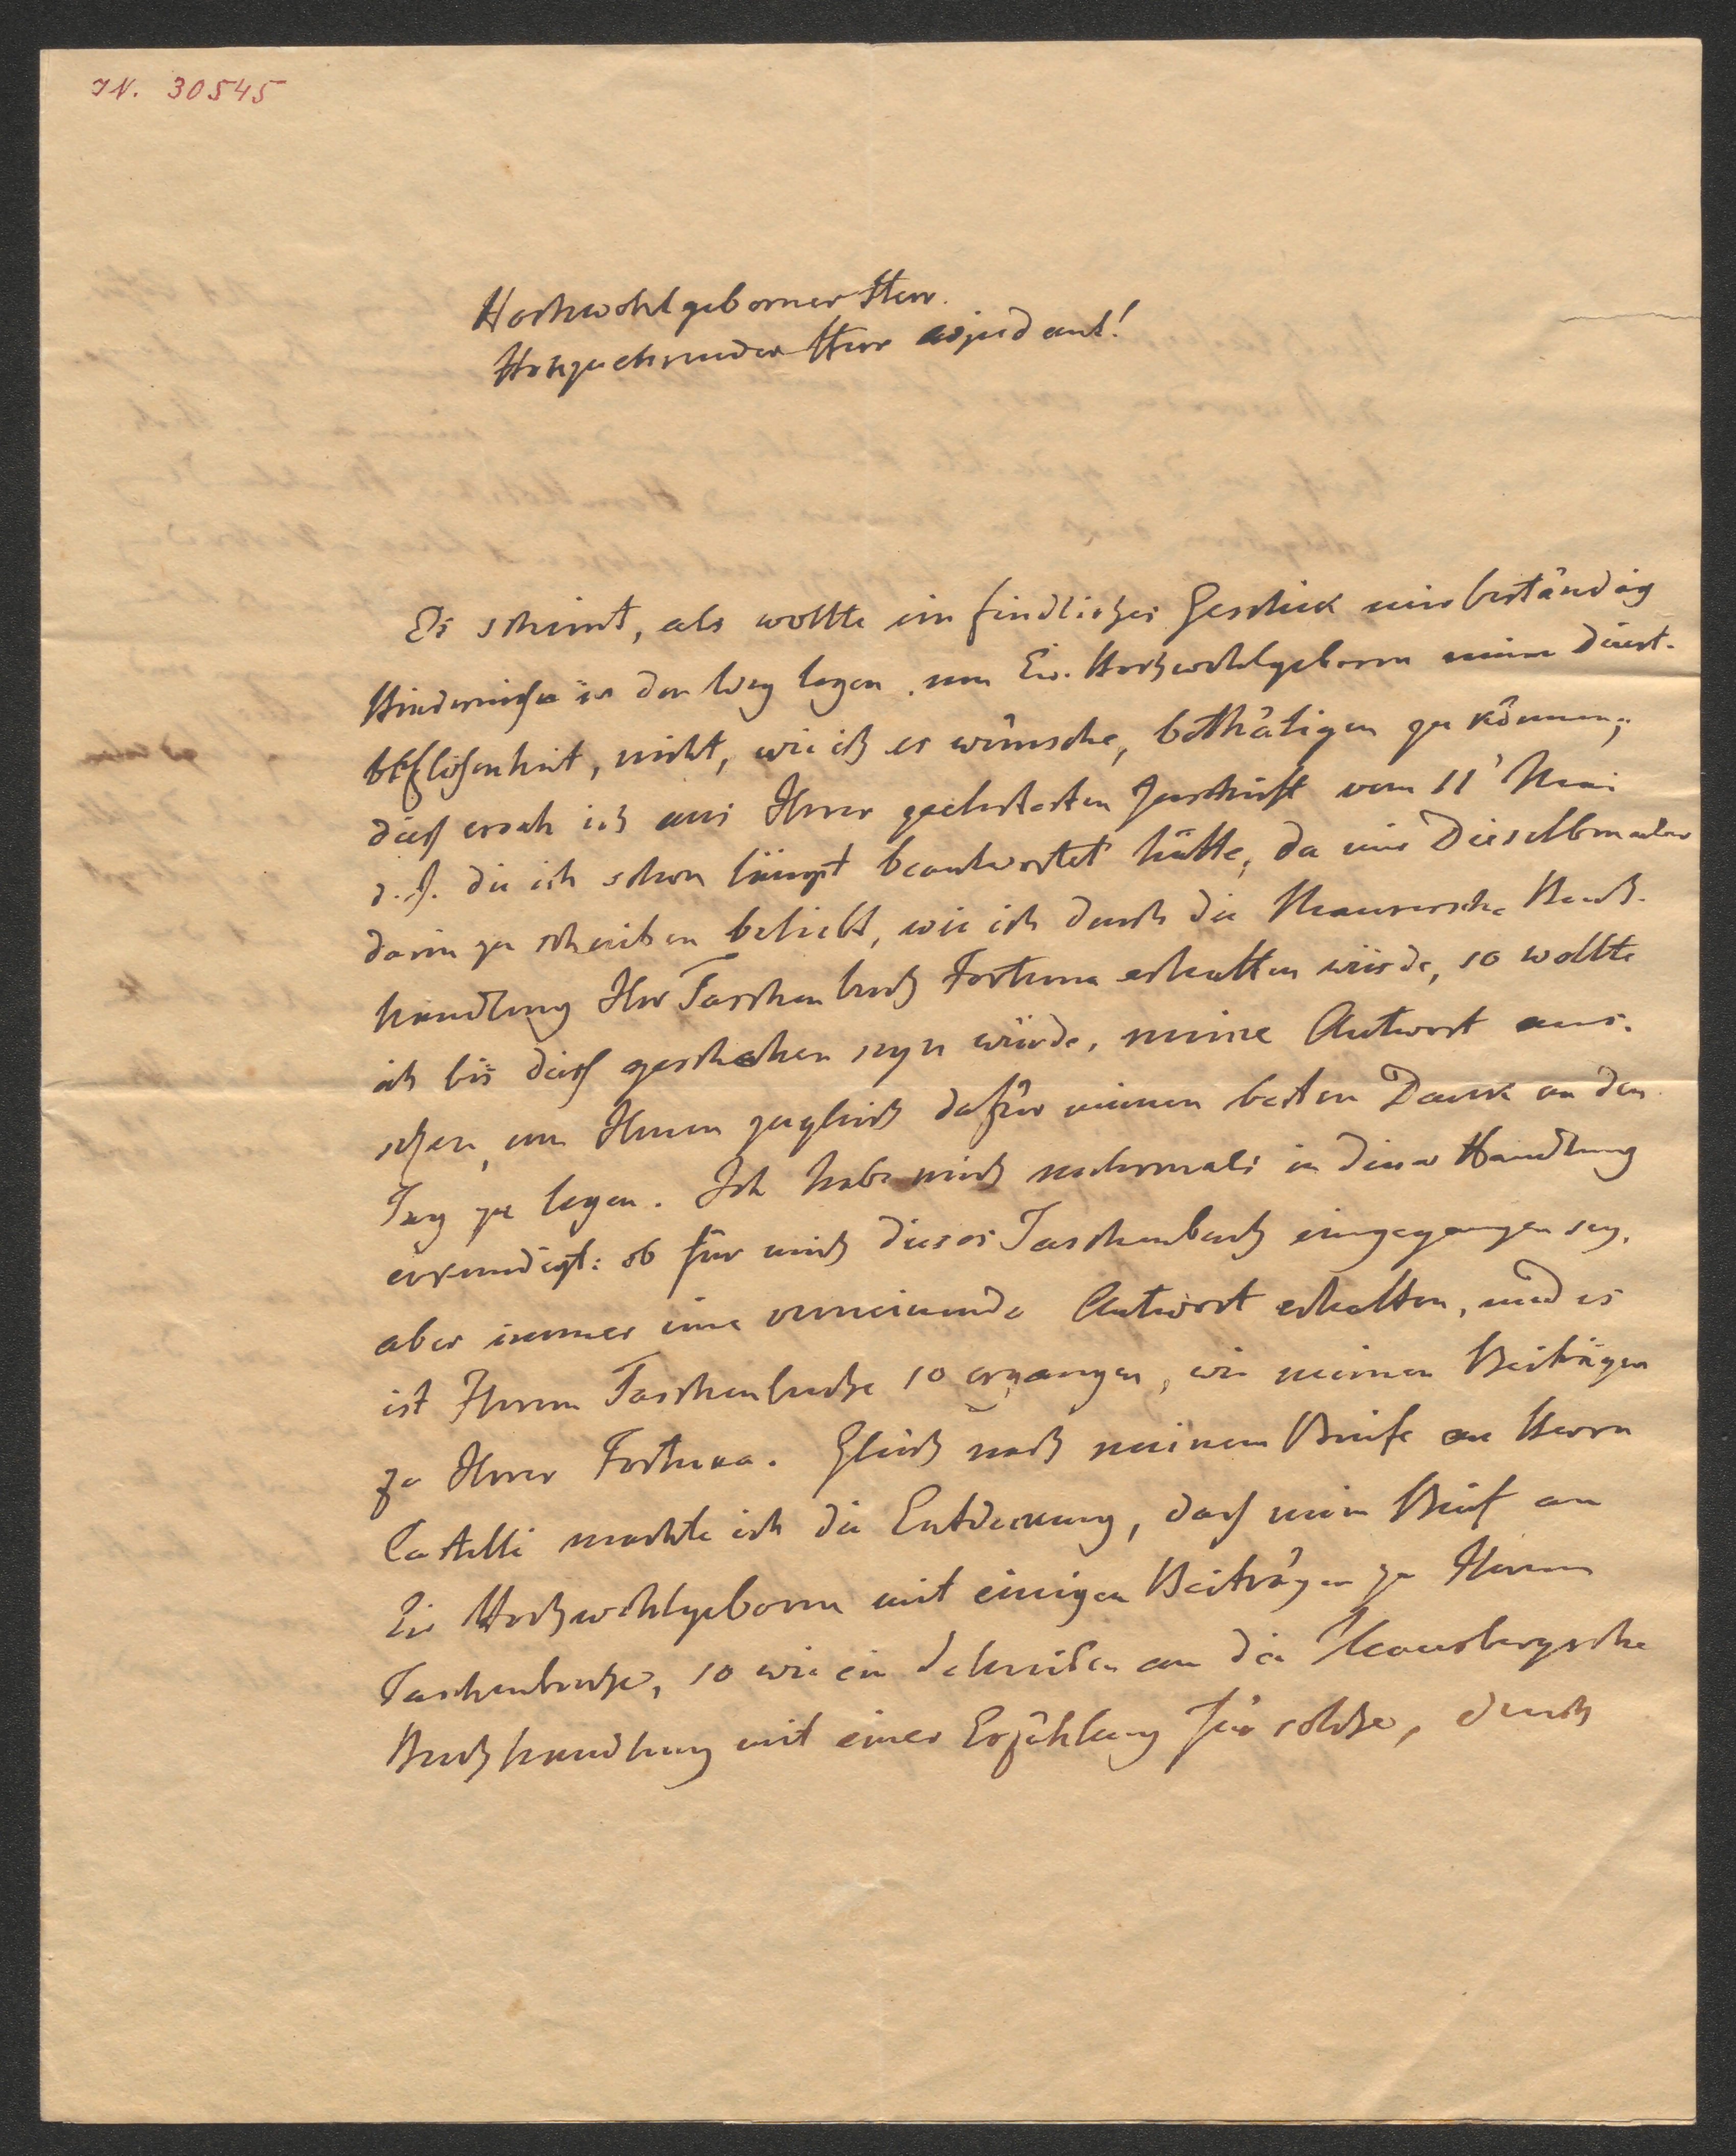 IN. 30545
Hochwohlgeborner Herr.
Hochzuehrender Herr Adjudant!
Es scheint, als wollte ein feindliches Geschick mir beständig
Hindernisse in den Weg legen, um Ew. Hochwohlgeborn meine Dienst-
beflissenheit, nicht, wie ich es wünsche, bethätigen zu können;
dieß ersah ich aus Ihrer geehrtesten Zuschrift vom 11' Mai
d. J. die ich schon längst beantwortet hätte, da mir Dieselben aber
darin zu schreiben beliebt, wie ich durch die Maurersche Buch-
handlung Ihr Taschenbuch Fortuna erhalten würde, so wollte
ich bis dieß geschehen seyn würde, meine Antwort aus-
setzen, um Ihnen zugleich dafür meinen besten Dank an den
Tag zu legen. Ich habe mich mehrmals in dieser Handlung
erkundigt: ob für mich dieses Taschenbuch eingegangen sey,
aber immer eine verneinende Antwort erhalten, und es
ist Ihrem Taschenbuche so ergangen, wie meinen Beiträgen
zu Ihrer Fortuna. Gleich nach meinem Briefe an Herrn
Castelli machte ich die Entdeckung, daß mein Brief an
Ew Hochwohlgeborn mit einigen Beiträgen zu Ihrem
Taschenbuche, so wie ein Schreiben an die
Buchhandlung mit einer Erzählung für solche, durch